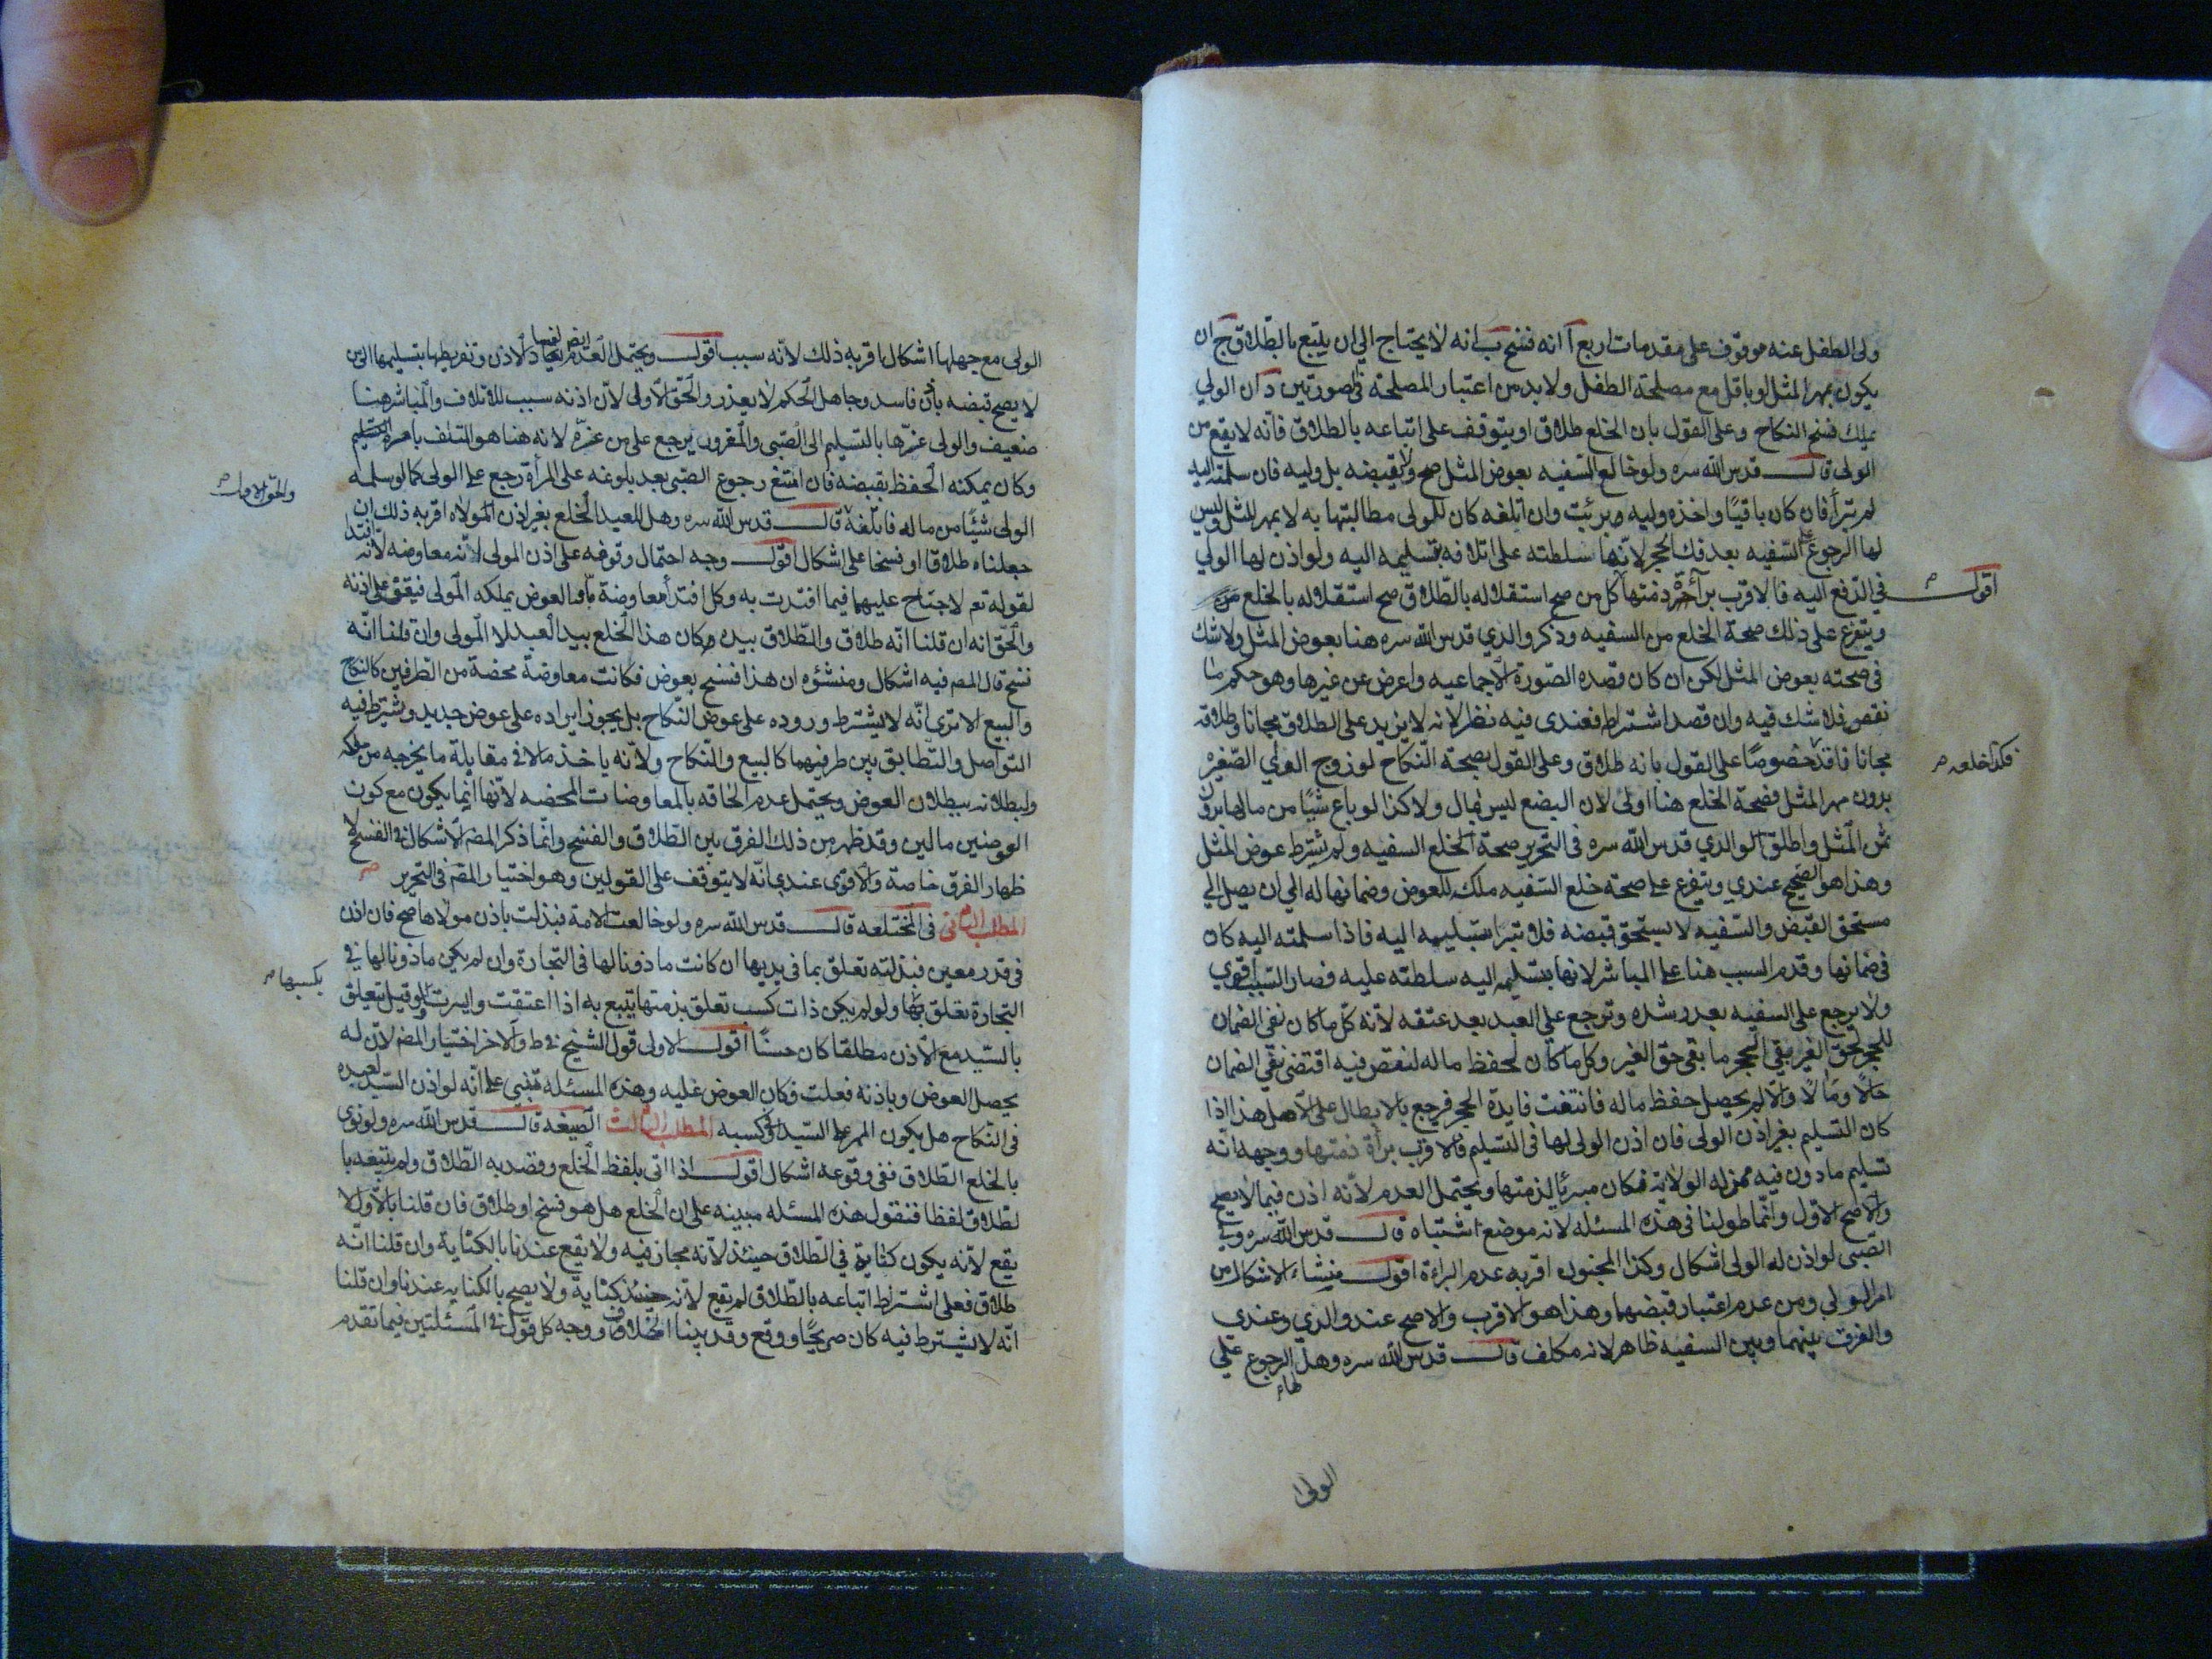 ولى الطفل عنه موقوف على مقدمات اربع آ انه فسخ ب انه لا يحتاج الى ان يتبع بالطلاق ج ان
يكون بمهر المثل او باقل مع مصلحة الطفل ولا بد من اعتبار المصلحة فى صورتين د ان الولي
يملك فسخ النكاح وعلى القول بان الخلع طلاق او يتوقف على اتباعه بالطلاق فانه لا يقع من
الولى قال قدس الله سره ولو خالع السفيه بعوض المثل صح ولا يقبضه بل وليه فان سلمته اليه
لم تبرأ فان كان باقيًا واخذه وليه برئت وان اتلفه كان للولى مطالبتها به لا بمهر المثل وليس
لها الرجوع على السفيه بعد فك الحجر لانها سلطته على اتلافه بتسليمه اليه ولو اذن لها الولي
فى الدفع اليه فالاقرب براءة ذمتها اقول كل من صح استقلاله بالطلاق صح استقلاله بالخلع
ويتفرع على ذلك صحة الخلع من السفيه وذكر والدي قدس الله سره هنا بعوض المثل ولا شك
فى صحته بعوض المثل لكن ان كان قصده الصورة الاجماعيه واعرض عن غيرها وهو حكم ما
نقص فلا شك فيه وان قصد اشتراطه فعندى فيه نظر لانه لا يزيد على الطلاق مجانا وطلاقه
مجانا نافذ فكذا خلعه خصوصًا على القول بانه طلاق وعلى القول بصحة النكاح لو زوج الولي الصغيره
بدون مهر المثل فصحة الخلع هنا اولى لان البضع ليس بمال ولا كذا لو باع شيئًا من مالها بدون
ثمن المثل واطلق والدي قدس الله سره فى التحرير صحة الخلع السفيه ولم يشترط عوض المثل
وهذا هو الصحيح عندي ويتفرع على صحة خلع السفيه ملك للعوض وضمانها له الى ان يصل الى
مستحق القبض والسفيه لا يستحق قبضه فلا تبرا بتسليمه اليه فاذا سلمته اليه كان
فى ضمانها وقدم السبب هنا على المباشر لانها بتسليمه اليه سلطته عليه فصار السبب اقوى
ولا يرجع على السفيه بعد رشده وترجع على العبد بعد عتقه لانه كل ما كان نفى الضمان
للحجر لحق الغير بقى الحجر ما بقى حق الغير وكل ما كان لحفظ ماله لنقص فيه اقتضى نفى الضمان
حالًا ومالًا والا لم يحصل حفظ ماله فانتفت فايدة الحجر فرجع بالابطال على الاصل هذا اذا
كان التسليم بغير اذن الولى فان اذن الولى لها فى التسليم فالاقرب براءة ذمتها ووجهه انه
تسليم ماذون فيه ممن له الولاية فكان مبريًا لذمتها ويحتمل العدم لانه اذن فيما لا يصح
والاصح الاول وانما طولنا فى هذه المسئله لانه موضع اشتباه قال قدس الله سره وفى
الصبى لو اذن له الولى اشكال وكذا المجنون اقربه عدم البراءة اقول منشاء الاشكال من
امر الولي ومن عدم اعتبار قبضهما وهذا هو الاقرب والاصح عند والدي وعندى
والفرق بينهما وبين السفيه ظاهر لانه مكلف قال قدس الله سره وهل لها الرجوع على
الولى
الولى مع جهلها اشكال اقربه ذلك لانه سبب اقول ويحتمل العدم لفساد الاذن وتفريطها بتسليمها الى من
لا يصح قبضه باذن فاسد وجاهل الحكم لا يعذر والحق الاولى لان اذنه سبب للاتلاف والمباشر هنا
ضعيف والولى غرها بالتسليم الى الصبى والمغرور يرجع على من غره لانه هنا هو المتلف بامره التسليم
وكان يمكنه الحفظ بقبضه فان امتنع رجوع الصبى بعد بلوغه على المرأة رجع على الولى كما لو سلمه
الولى شيئًا من ماله فاتلفه والحق الاول قال قدس الله سره وهل للعبد الخلع بغير اذن المولاه اقربه ذلك ان
جعلناه طلاقا او فسخا على اشكال اقول وجه احتمال وقوفه على اذن المولى لانه معاوضه لانه افتداء
لقوله تعم لا جناح عليهما فيما افتدت به وكل افتداء معاوضة والعوض يملكه المولى فيقف على اذنه
والحق انه ان قلنا انه طلاق والطلاق بيده وكان هذا الخلع بيد العبد لا المولى وان قلنا انه
فسخ قال المص فيه اشكال ومنشؤه ان هذا فسخ بعوض فكانت معاوضة محضة من الطرفين كالنكاح
والبيع الا ترى انه لا يشترط وروده على عوض النكاح بل يجوز ايراده على عوض جديد ويشترط فيه
التواصل والتطابق بين طرفيهما كالبيع والنكاح ولانه ياخذ مالا فى مقابلة ما يخرجه من ملكه
ولبطلانه ببطلان العوض ويحتمل عدم الحاقه بالمعاوضات المحضه لانها انما يكون مع كون
العوضين مالين وقد ظهر من ذلك الفرق بين الطلاق والفسخ وانما ذكر المص الاشكال فى الفسخ لا
ظهار الفرق خاصة والاقوى عندي انه لا يتوقف على القولين وهو اختيار المص فى التحرير
المطلب الثانى فى المختلعه قال قدس الله سره ولو خالعت الامة فبذلت باذن مولاها صح فان اذن
فى قدر معين فبذلته تعلق بما فى يديها ان كانت ماذونا لها فى التجارة وان لم يكن ماذونا لها فى
التجارة تعلق بكسبها ولو لم يكن ذات كسب تعلق بذمتها يتبع به اذا اعتقت وايسرت ولو قيل بتعلق
بالسيد مع الاذن مطلقا كان حسنًا اقول الاولى قول الشيخ فى ط والاخر اختيار المص لان له
يحصل العوض وباذنه فعلت فكان العوض عليه وهذه المسئله تبنى على انه لو اذن السيد لعبده
فى النكاح هل يكون المهر على السيد او فى كسبه المطلب الثالث الصيغه قال قدس الله سره ولو نوى
بالخلع الطلاق ففى وقوعه اشكال اقول اذا اتى بلفظ الخلع وقصد به الطلاق ولم يتبعه با
لطلاق لفظا فنقول هذه المسئله مبينه على ان الخلع هل هو فسخ او طلاق فان قلنا بالاول لا
يقع لانه يكون كناية فى الطلاق حينئذ لانه مجاز فيه ولا يقع عندنا بالكناية وان قلنا انه
طلاق فعلى اشتراط اتباعه بالطلاق لم يقع لانه حينئذ كناية ولا يصح بالكنايه عندنا وان قلنا
انه لا يشترط فيه كان صريحًا ووقع وقد بينا الخلاف ووجه كل قول فى المسئلتين فيما تقدم